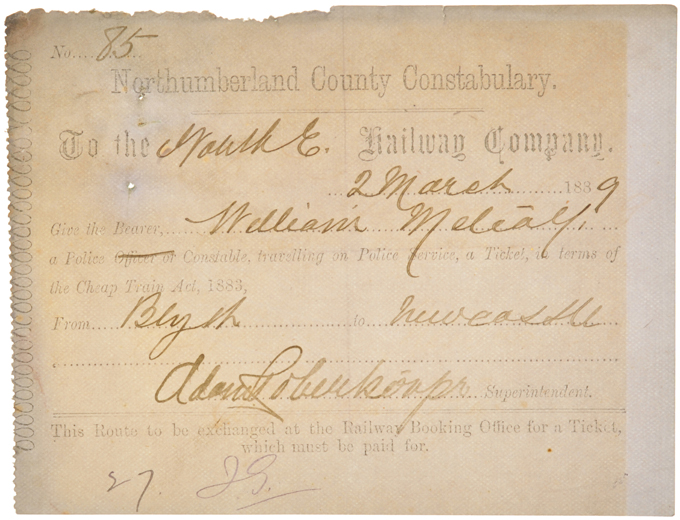 No. 85
Northumberland County Constabulary.
To the North E. Railway Company.
2 March 1889
Give the Bearer, William Metcalf.
a Police Officer or Constable, travelling on Police Service, a Ticket, in terms of
the Cheap Train Act, 1883,
From Blyth to Newcastle
Adam Superintendent.
This Route to be exchanged at the Railway Booking Office for a Ticket,
which must be paid for.
27.